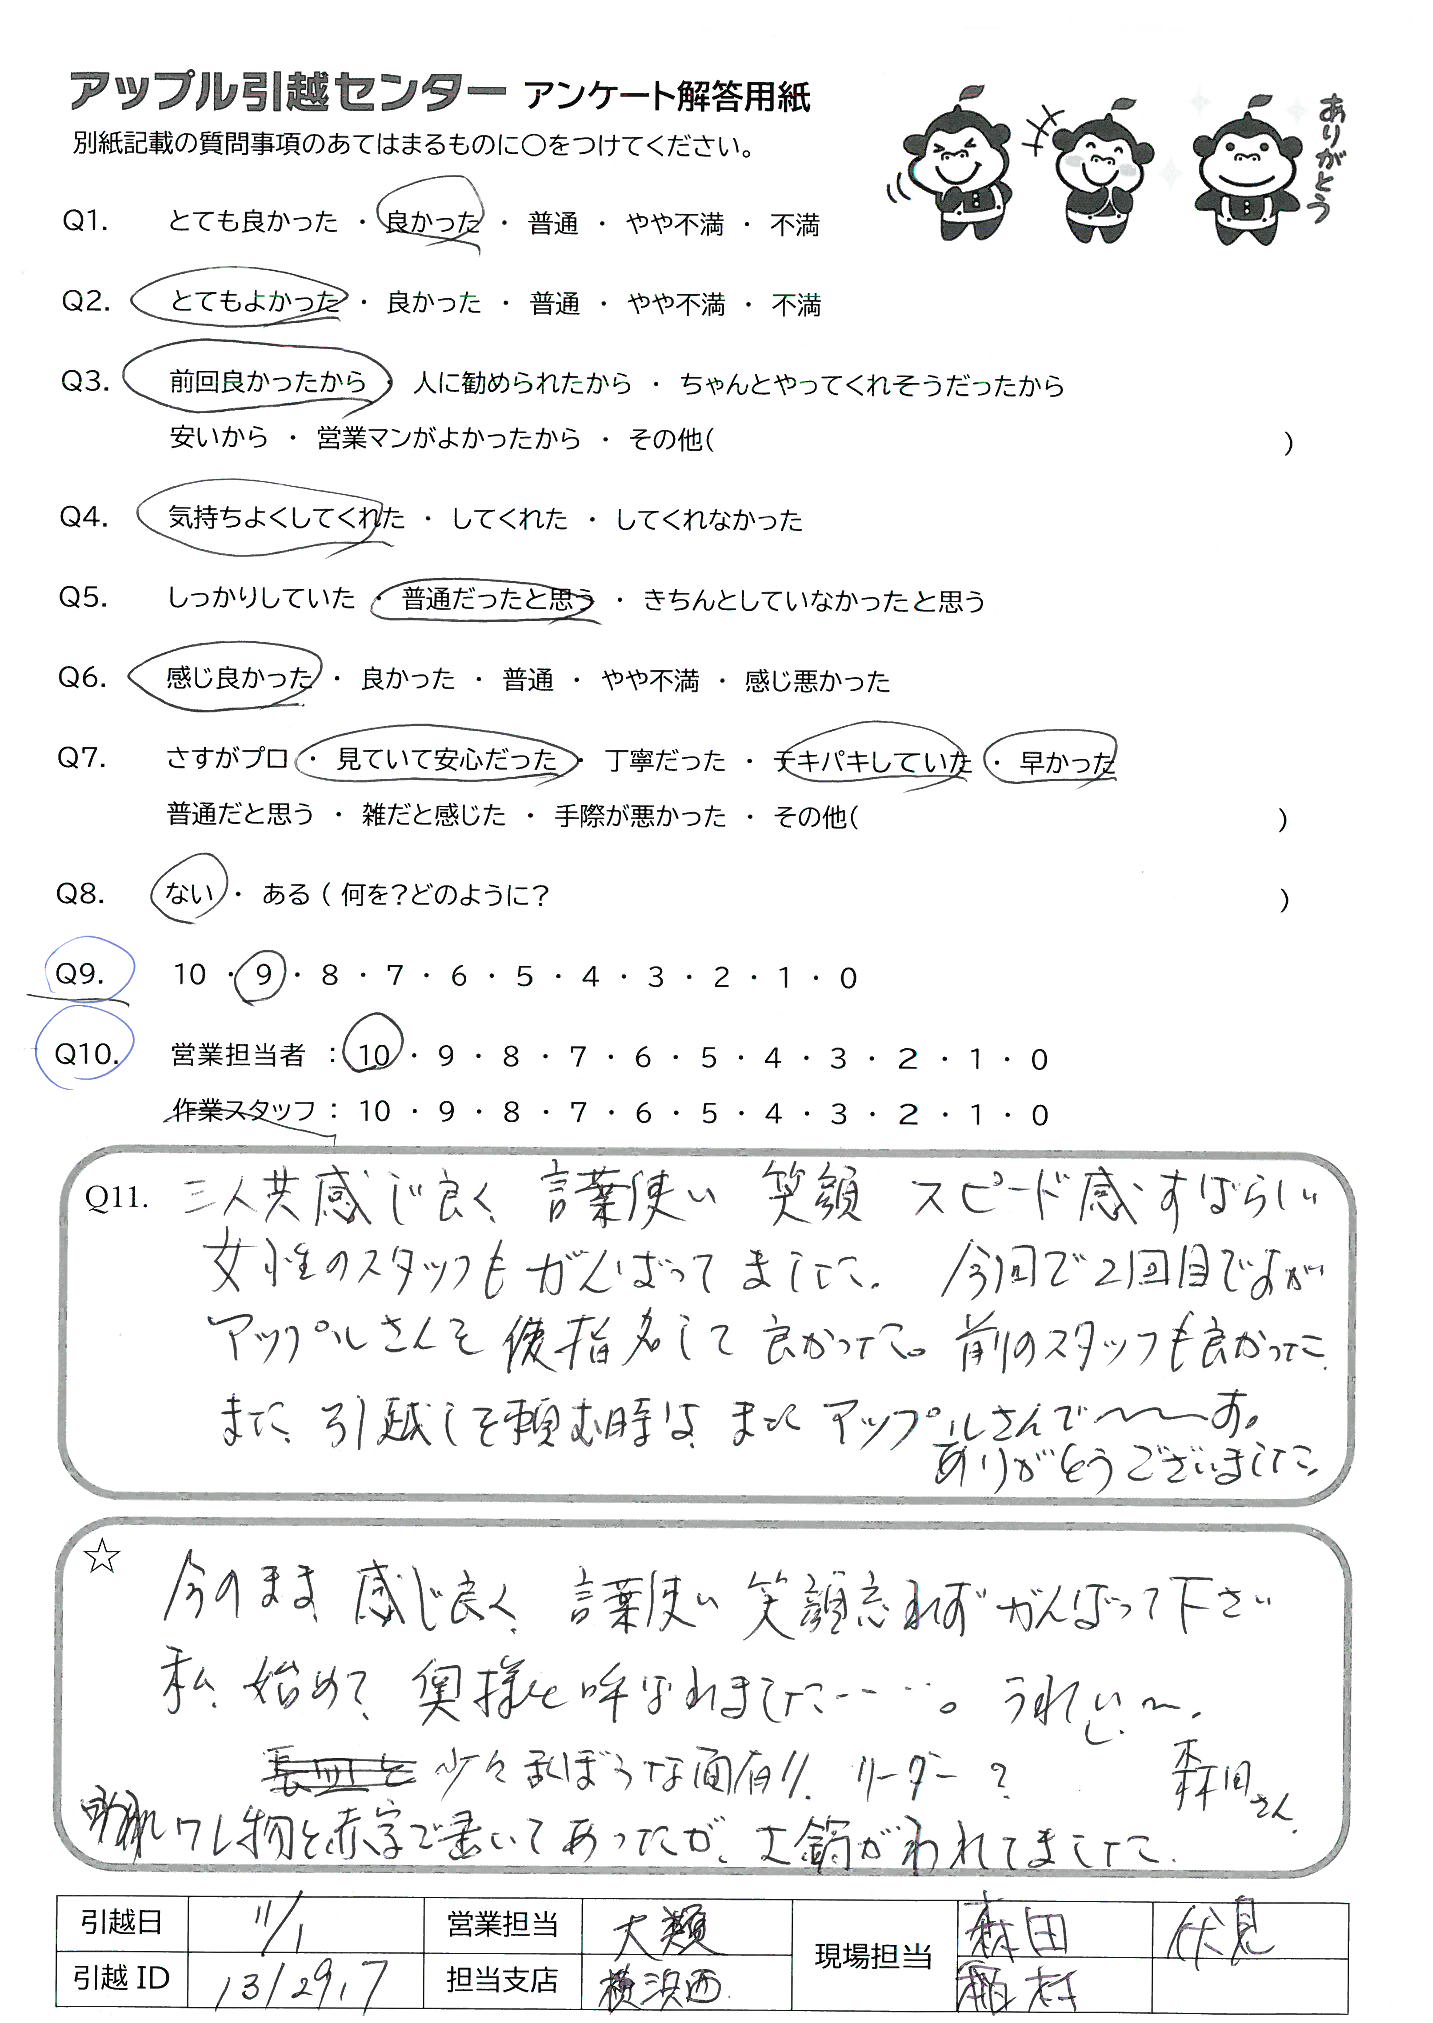 アップル引越センター アンケート解答用紙
ありがとう
別紙記載の質問事項のあてはまるものに〇をつけてください。
Q1. とても良かった ・ 良かった ・ 普通 ・ やや不満 ・ 不満
Q2. とてもよかった ・ 良かった ・ 普通 ・ やや不満 ・ 不満
Q3. 前回良かったから ・ 人に勧められたから ・ ちゃんとやってくれそうだったから
安いから ・ 営業マンがよかったから ・ その他( )
Q4. 気持ちよくしてくれた ・ してくれた ・ してくれなかった
Q5. しっかりしていた ・ 普通だったと思う ・ きちんとしていなかったと思う
Q6. 感じ良かった ・ 良かった ・ 普通 ・ やや不満 ・ 感じ悪かった
Q7. さすがプロ ・ 見ていて安心だった ・ 丁寧だった ・ テキパキしていた ・ 早かった
普通だと思う ・ 雑だと感じた ・ 手際が悪かった ・ その他( )
Q8. ない ・ ある ( 何を?どのように? )
Q9. 10 ・ 9 ・ 8 ・ 7 ・ 6 ・ 5 ・ 4 ・ 3 ・ 2 ・ 1 ・ 0
Q10. 営業担当者 : 10 ・ 9 ・ 8 ・ 7 ・ 6 ・ 5 ・ 4 ・ 3 ・ 2 ・ 1 ・ 0
作業スタッフ : 10 ・ 9 ・ 8 ・ 7 ・ 6 ・ 5 ・ 4 ・ 3 ・ 2 ・ 1 ・ 0
Q11. 三人共感じ良く、言葉使い 笑顔 スピード感すばらしい
女性のスタッフもがんばってました。 今回で2回目ですが
アップルさんを 指名して良かった。前のスタッフも良かった
また、引越しを頼む時は、またアップルさんで〜〜す。
ありがとうございました。
☆ 今のまま 感じ良く、言葉使い 笑顔忘れず がんばって下さい
私、始めて、奥様と呼ばれました‥‥。うれしい〜。
少々乱ぼうな面有り。リーダー? 森田さん
ワレ物と赤字で書いてあったが、土鍋がわれてました。
引越日 11/1 営業担当 大類 現場担当 森田 伏見
引越ID 1312917 担当支店 横浜西 稲村